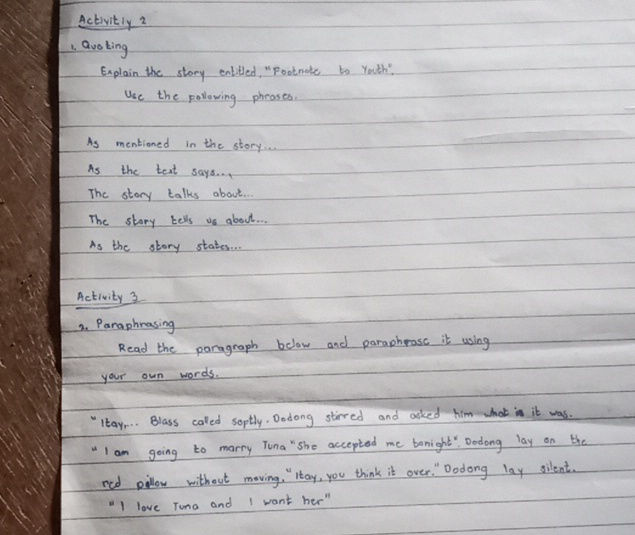 Activitiy 2
1. Quoting
Explain the story entitled, "Footnote to Youth".
Use the following phrases.
As mentioned in the story...
As the text says...
The story talks about...
The story tells us about...
As the story states...
Activity 3
2. Paraphrasing
Read the paragraph below and paraphrase it using
your own words.
"Itay,... Blass called softly. Dodong stirred and asked him what is it was.
"I am going to marry Tuna "She accepted me tonight". Dodong lay on the
red pillow without moving. "Itay, you think it over." Dodong lay silent.
"I love Tuna and I want her"